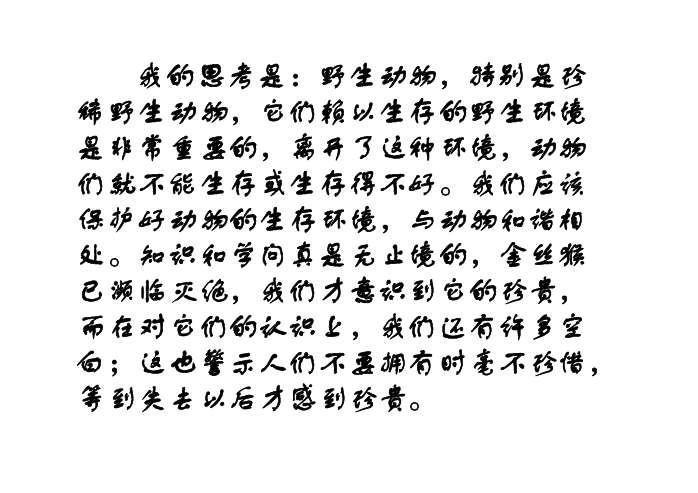 我的思考是：野生动物，特别是珍
稀野生动物，它们赖以生存的野生环境
是非常重要的，离开了这种环境，动物
们就不能生存或生存得不好。我们应该
保护好动物的生存环境，与动物和谐相
处。知识和学问真是无止境的，金丝猴
已濒临灭绝，我们才意识到它的珍贵，
而在对它们的认识上，我们还有许多空
白；这也警示人们不要拥有时毫不珍惜，
等到失去以后才感到珍贵。